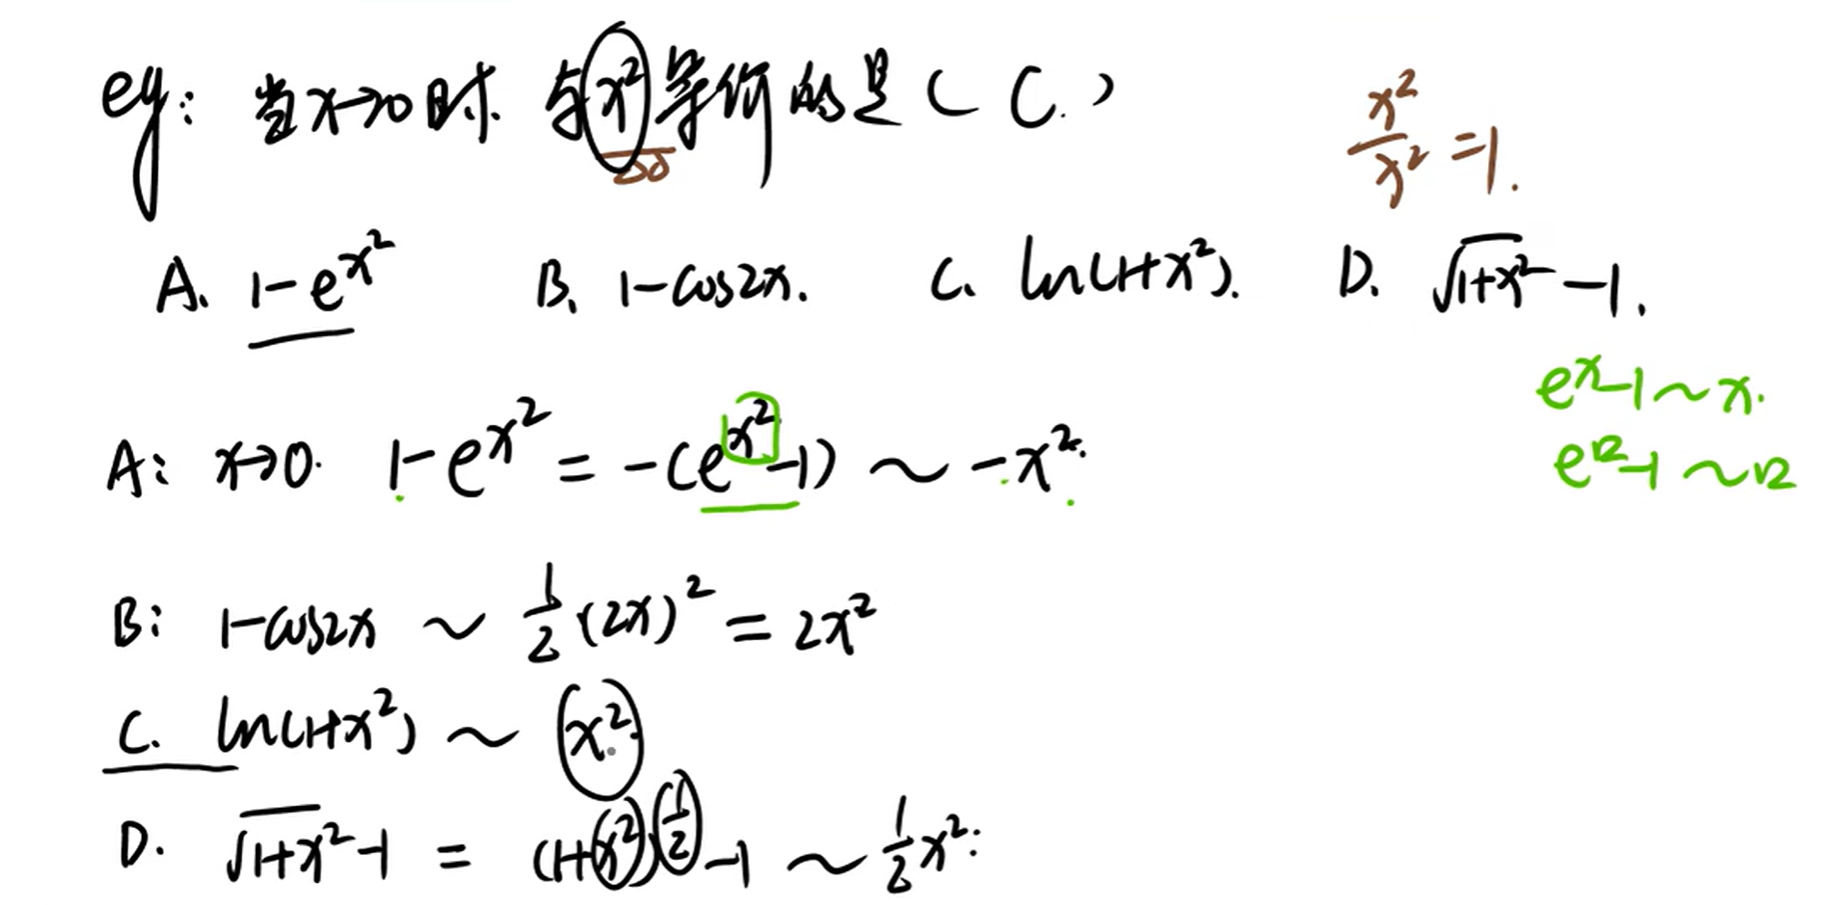 eg: 当x→0时. 与x²等价的是( C. )
x²/x² = 1.
A. 1-e^x² B. 1-cos2x. C. ln(1+x²). D. √1+x² -1.
e^x-1 ~ x.
A: x→0. 1-e^x² = -(e^x²-1) ~ -x².
B: 1-cos2x ~ 1/2(2x)² = 2x²
C. ln(1+x²) ~ x²
D. √1+x² -1 = (1+x²)^1/2 -1 ~ 1/2x²